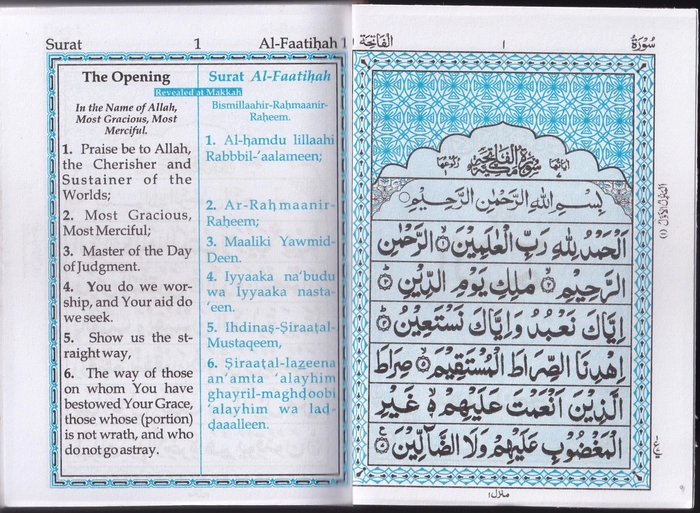 Surat 1 Al-Faatiḥah 1
The Opening
Revealed at Makkah
In the Name of Allah,
Most Gracious, Most
Merciful.
1. Praise be to Allah,
the Cherisher and
Sustainer of the
Worlds;
2. Most Gracious,
Most Merciful;
3. Master of the Day
of Judgment.
4. You do we wor-
ship, and Your aid do
we seek.
5. Show us the st-
raight way,
6. The way of those
on whom You have
bestowed Your Grace,
those whose (portion)
is not wrath, and who
do not go astray.
Surat Al-Faatiḥah
Bismillaahir-Raḥmaanir-
Raḥeem.
1. Al-ḥamdu lillaahi
Rabbbil-‘aalameen;
2. Ar-Raḥmaanir-
Raḥeem;
3. Maaliki Yawmid-
Deen.
4. Iyyaaka na‘budu
wa Iyyaaka nasta-
‘een.
5. Ihdinaṣ-Ṣiraaṭal-
Mustaqeem,
6. Ṣiraaṭal-lazeena
an‘amta ‘alayhim
ghayril-maghḍoobi
‘alayhim wa laḍ-
ḍaaalleen.
سُوْرَةُ ١ الْفَاتِحَة
سُوْرَةُ الْفَاتِحَةِ مَكِّيَّةٌ
بِسْمِ اللهِ الرَّحْمٰنِ الرَّحِيْمِ
اَلْحَمْدُ لِلّٰهِ رَبِّ الْعٰلَمِيْنَ ۝١ الرَّحْمٰنِ
الرَّحِيْمِ ۝٢ مٰلِكِ يَوْمِ الدِّيْنِ ۝٣
اِيَّاكَ نَعْبُدُ وَاِيَّاكَ نَسْتَعِيْنُ ۝٤
اِهْدِنَا الصِّرَاطَ الْمُسْتَقِيْمَ ۝٥ صِرَاطَ
الَّذِيْنَ اَنْعَمْتَ عَلَيْهِمْ ۝٦ غَيْرِ
الْمَغْضُوْبِ عَلَيْهِمْ وَلَا الضَّآلِّيْنَ ۝٧
منزل ١